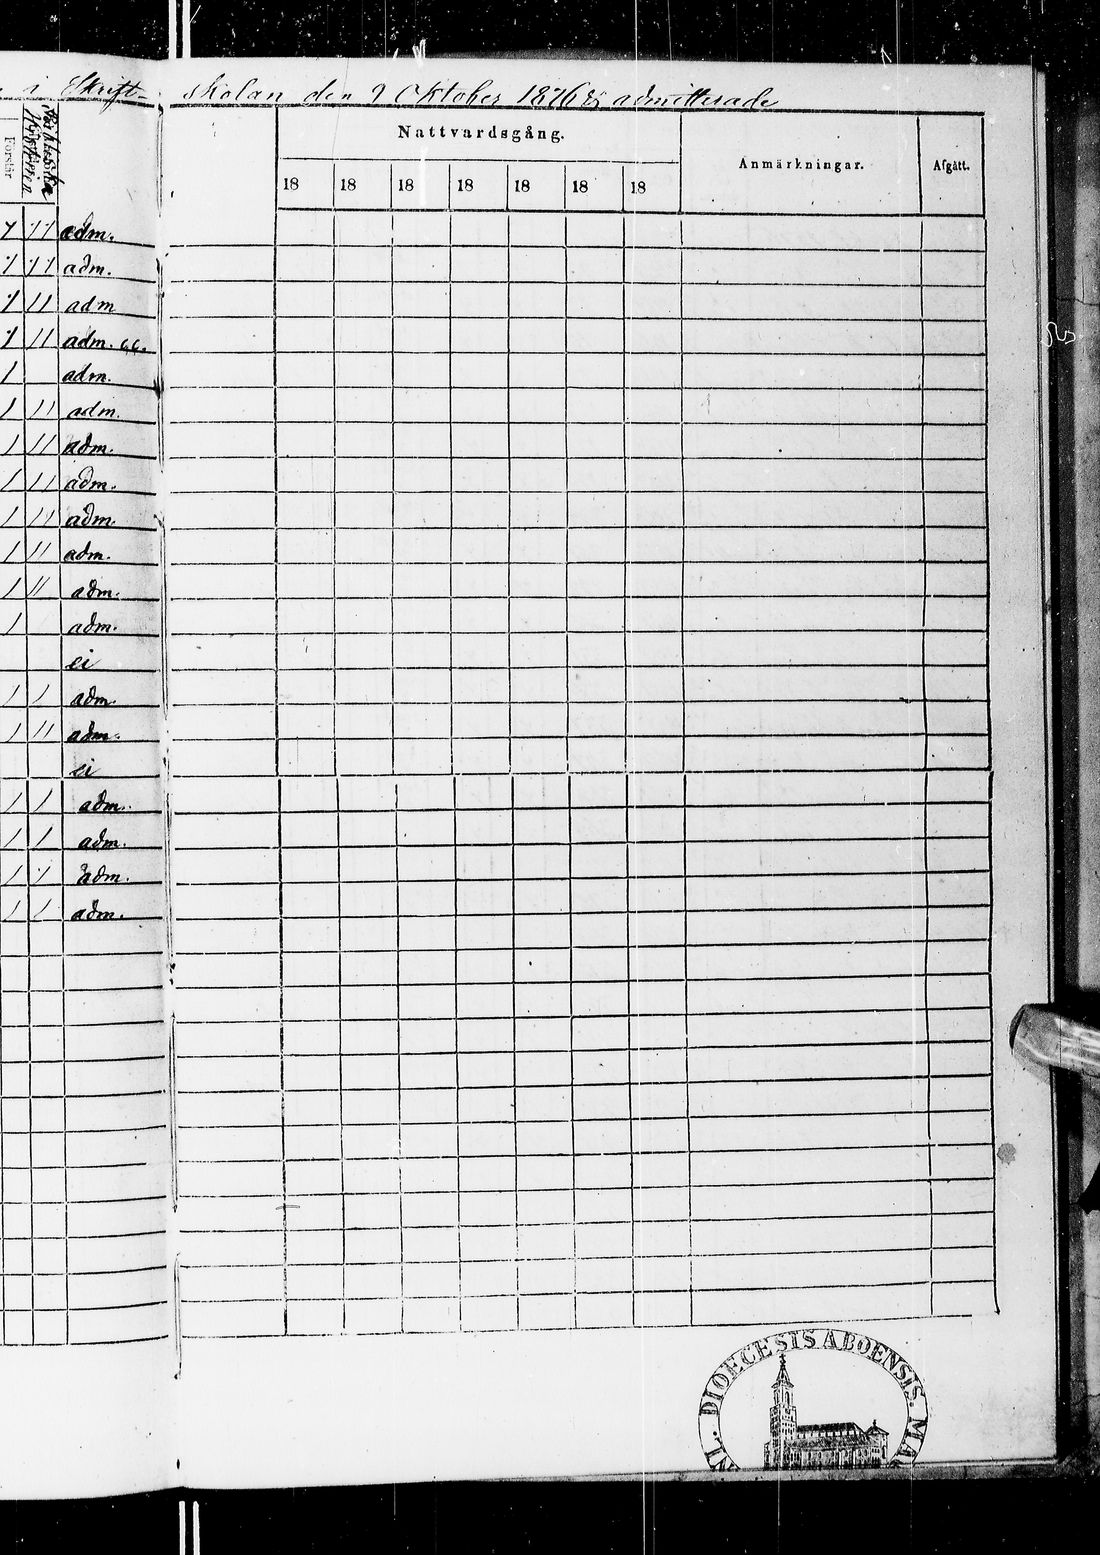 i Skrift- skolan den 9 Oktober 1876 admitterade
Förstår
Nattvardsgång.
Anmärkningar.
Afgått.
18 18 18 18 18 18 18
1 11 adm.
1 11 adm.
1 11 adm
1 11 adm.
1 adm.
1 11 adm.
1 11 adm.
1 11 adm.
1 11 adm.
1 11 adm.
1 11 adm.
1 adm.
ei
1 1 adm.
1 11 adm.
ei
1 1 adm.
1 1 adm.
1 1 adm.
1 1 adm.
DIOECESIS ABOENSIS. MA